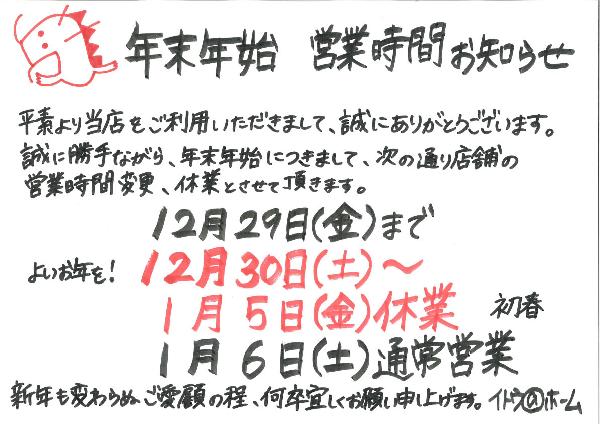 年末年始 営業時間お知らせ
平素より当店をご利用いただきまして、誠にありがとうございます。
誠に勝手ながら、年末年始につきまして、次の通り店舗の
営業時間変更、休業とさせて頂きます。
12月29日(金)まで
よいお年を! 12月30日(土)〜
1月5日(金)休業 初春
1月6日(土)通常営業
新年も変わらぬご愛顧の程、何卒宜しくお願い申し上げます。イトウ@ホーム